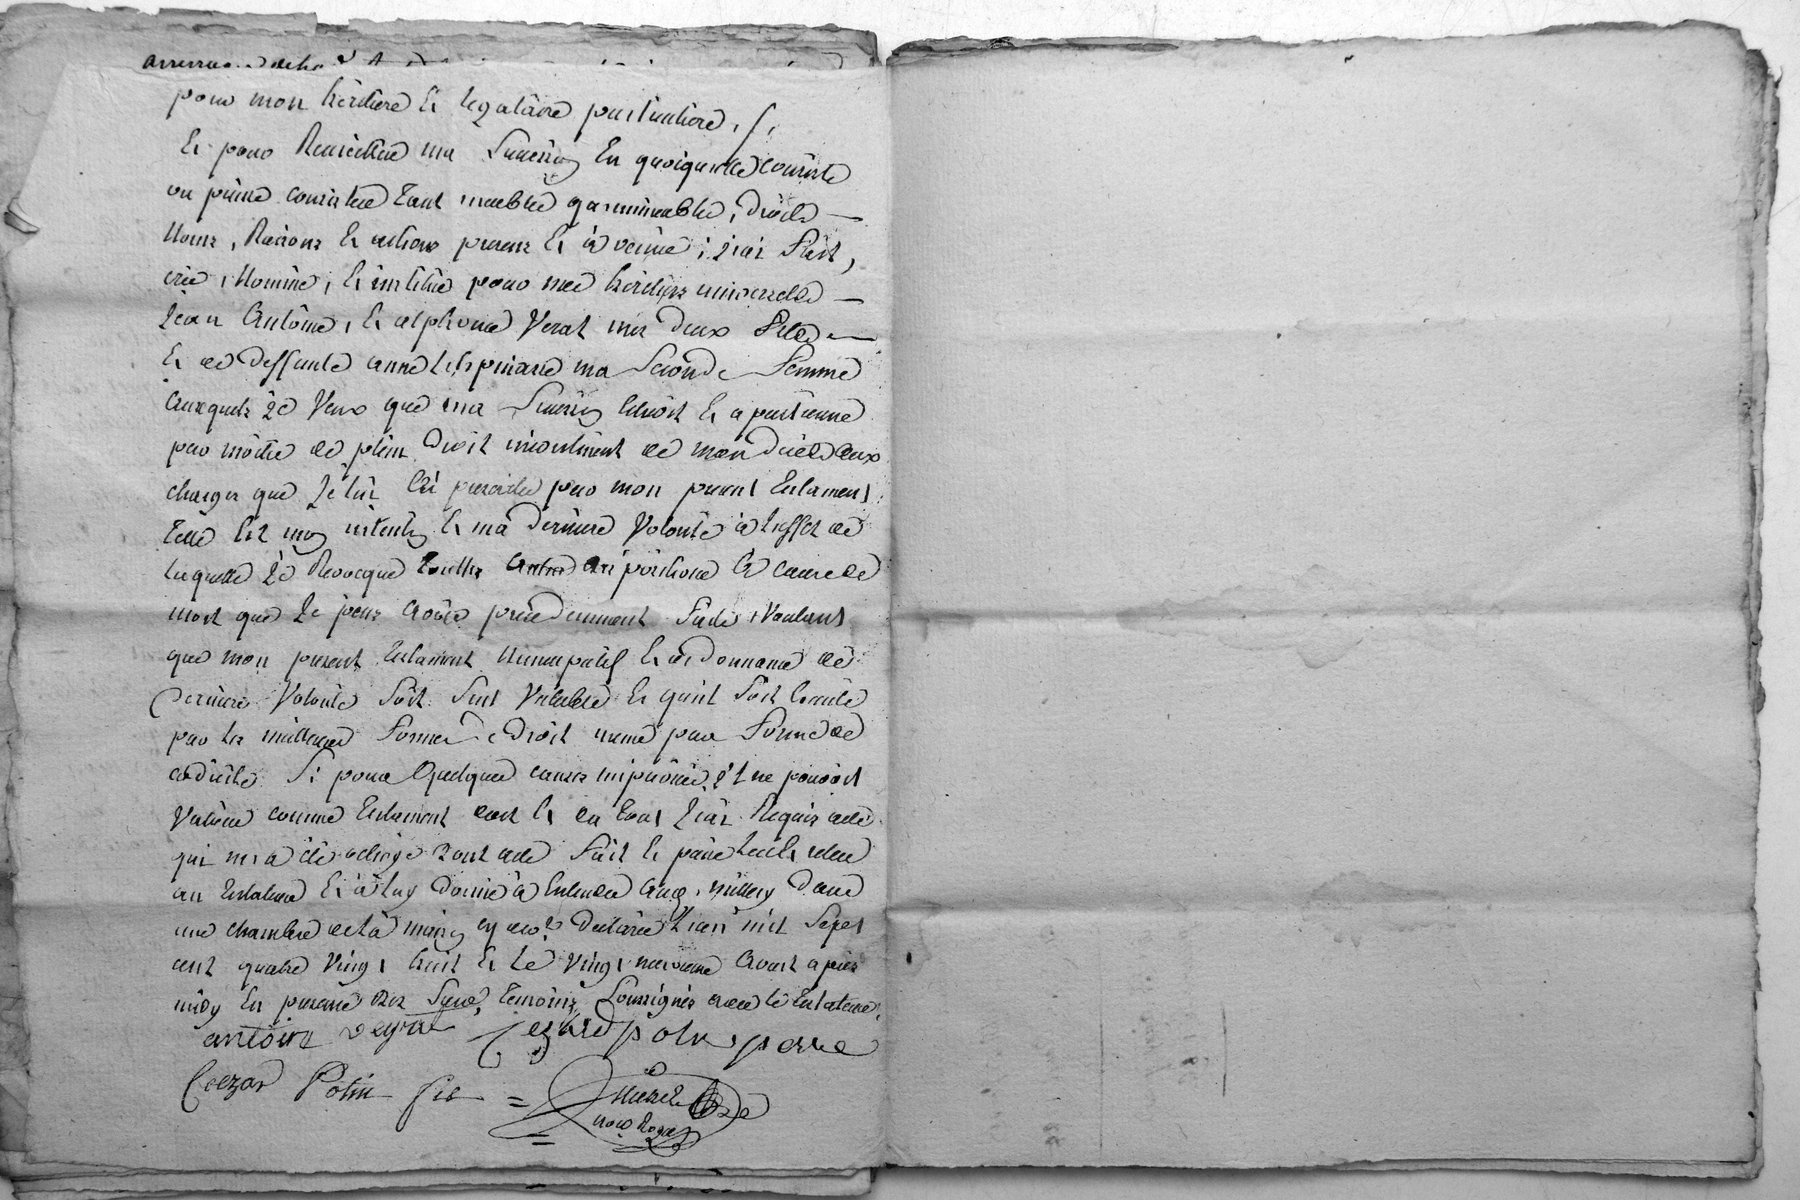 pour mon héritiere et legataire particuliere, /,
Et pour Recueillir ma Succession En quoiquelle consiste
ou puisse consister tant meubles quimmeubles, droits —
Noms, Raisons et actions presens et à venir; j'ai fait,
crée, Nommé, et institué pour mes héritiers universels —
Jean Antoine, et alphonse Verat mes deux fils —
Et de deffunte anne lespinasse ma Seconde femme
Auxquels je Veux que ma Succession Echoit et apartienne
par moitié de plein droit incontinent de mon deceds aux
charges que je luy ai prescrittes par mon present testament
telle Est mon intention et ma derniere Volonté à leffet de
laquelle je Revocque touttes autres dispositions à cause de
mort que je peus avoir precedemment faites, Voulant
que mon present testament Nuncupatif et ordonnance de
derniere Volonté soit seul Valable et quil soit Executé
par les meilleures formes de droit meme par forme de
codicile Si pour quelques causes imprévües il ne pouvoit
Valoir comme testament dont et du tout j'ai Requis acte
qui m'a été octroyé dont acte fait et passé leu et releu
au testateur et à luy donné à Entendre a millery dans
une chambre de la maison cy devt declarée l'an mil Sept
cent quatre Vingt huit et le Vingt neuvieme Aoust après
midy En presence des Srs temoins Soussignés avec le testateur,
antoine veyrat Cezard potin, perre
Coezar Potin fis =
Notre Royal